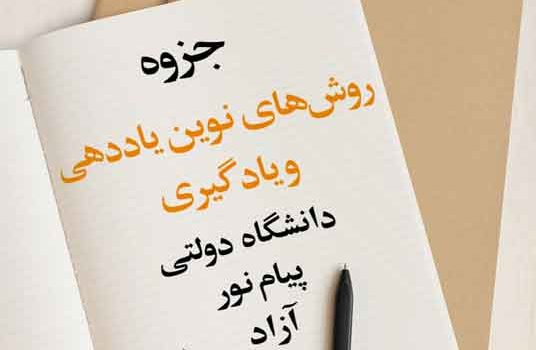 جزوه
روش‌های نوین یاددهی
و یادگیری
دانشگاه دولتی
پیام نور
آزاد